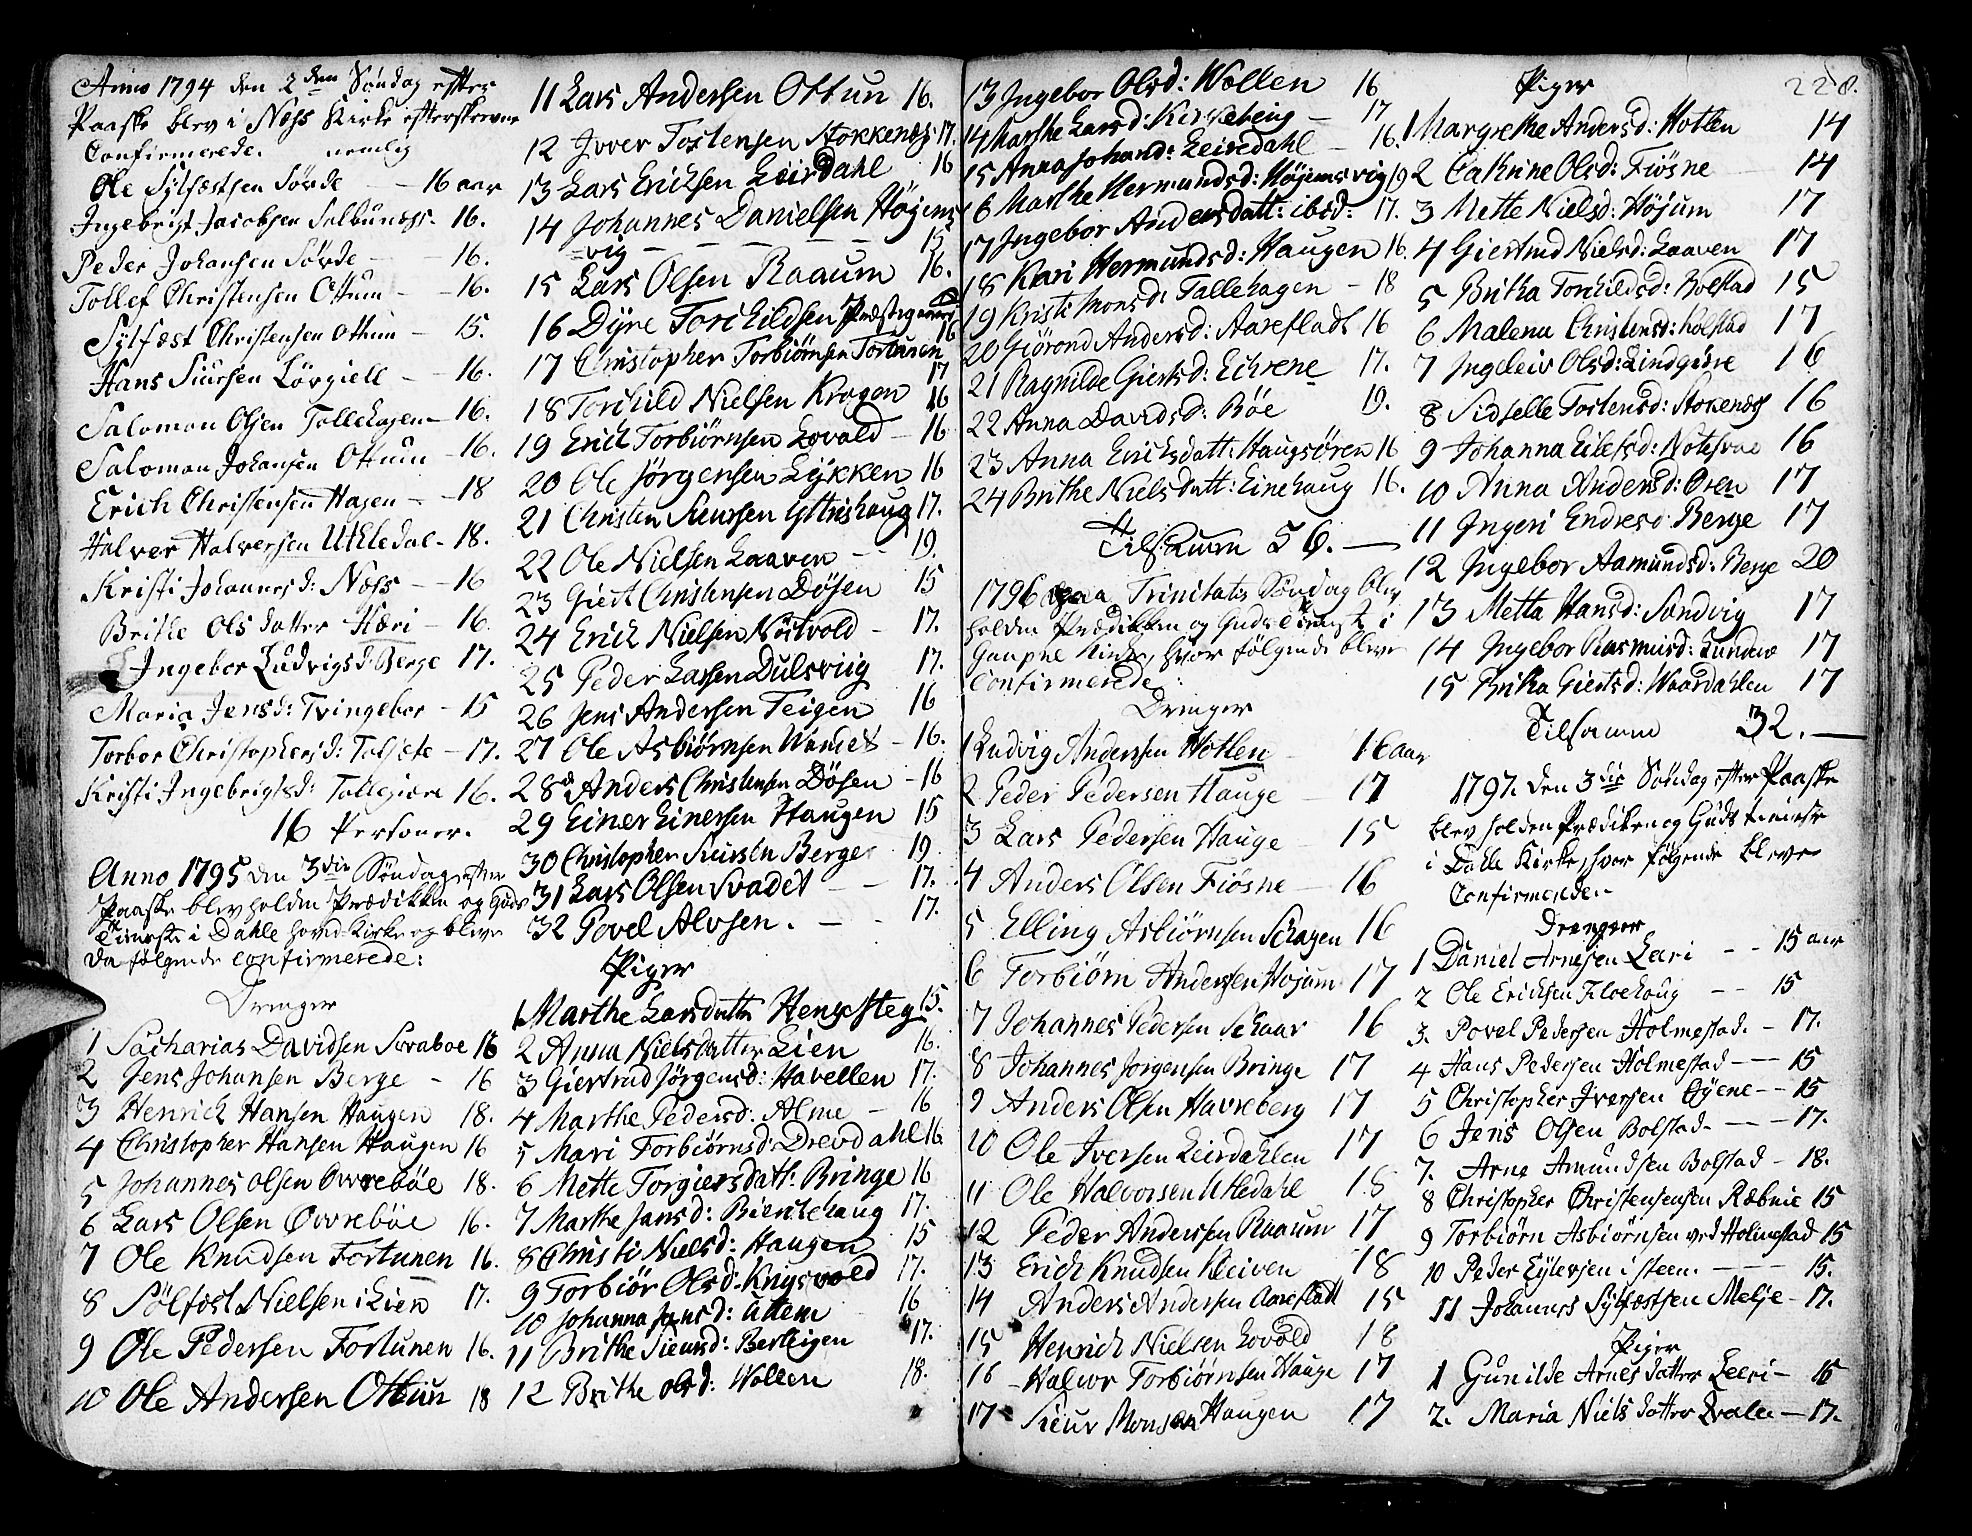 Anno 1794 den 2den Søndag efter
Paaske blev i Næss Kirke efterskrevne
Confirmerede. nemlig
Ole Sylfæstsen Sørde - - 16 aar
Ingebrigt Jacobsen Salbunæss. 16.
Peder Johansen Sørde - - 16.
Tollef Christensen Ottum - - 16.
Sylfæst Christensen Ottum - 15.
Hans Siursen Lørgiell - - 16.
Salomon Olsen Tollehagen - 16.
Salomon Johansen Ottum - 16.
Erich Christensen Hagen - - 18
Halver Halversen Utledal - 18.
Kristi Johannesd: Næss - - 16
Brithe Olsdatter Hæri - 16.
Ingebor Ludvigsd: Berge 17.
Maria Jensd: Tvingebor - 15
Torbor Christophersd: Tolsete - 17.
Kristi Ingebrigtsd: Tollegiøre 16.
16 Personer.
Anno 1795 den 3die Søndag efter
Paaske blev holden Prædikken og Guds
Tieneste i Dahle hoved Kirke og bleve
da følgende confirmerede:
Drenger
1 Sacharias Davidsen Svaboe 16
2 Jens Johansen Berge - 16
3 Henrich Hansen Haugen 18.
4 Christopher Hansen Haugen 16
5 Johannes Olsen Øvrebøe 18.
6 Lars Olsen Øvrebøe 16.
7 Ole Knudsen Fortunen 16.
8 Sølfæst Nielsen i Lien 17.
9 Ole Pedersen Fortunen 16.
10 Ole Andersen Ottun 18
11 Lars Andersen Ottun 16.
12 Iver Tostensen Stokkenæs: 17.
13 Lars Ericksen Leirdahl 16
14 Johannes Danielsen Høgems
=vig - - - - - 15
15 Lars Olsen Raaum 16.
16 Dyre Torchildsen Præstegaard 16
17 Christopher Torbiørnsen Fortunen 17
18 Torchild Nielsen Krogen 16
19 Erich Torbiørnsen Lovald - 16
20 Ole Jørgensen Lykken 16
21 Christen Siursen Gttrishaug 17.
22 Ole Nielsen Laaven - - 19.
23 Giert Christensen Døsen 15
24 Erich Nielsen Nøstvold - 17.
25 Peder Larsen Dulsviig 17.
26 Jens Andersen Teigen 16
27 Ole Asbiørnsen Wandet - 16.
28 Anders Christensen Døsen - 16
29 Einer Einersen Haugen 15
30 Christopher Siursen Berge 19
31 Lars Olsen Svadet - - 17.
32 Povel Alvsen. - - 17.
Piger
1 Marthe Larsdatter Hengsteg 15.
2 Anna Nielsdatter Lien 16.
3 Giertrud Jørgensd: Havellen 17.
4 Marthe Pedersd: Alme - 16
5 Mari Torbiørnsd: Drevdahl 16.
6 Mette Torgiersdatt: Bringe 16
7 Marthe Jansd: Bierkhaug 17.
8 Christi Nielsd: Haugen 15
9 Torbiør Olsd: Kngsvold 17.
10 Johanna Jensd: Attem 16
11 Brithe Siursd: Berteigen 17.
12 Brithe Olsd: Wollen 18.
13 Ingebor Olsd: Wollen 16
14 Marthe Larsd: Kirkebeug - 17
15 Anna Johansd: Leiredahl - 16.
16 Marthe Hermundsd: Højemsvig 19
17 Ingebor Andersdatt: ibid: 17.
18 Kari Hermundsd: Haugen 16.
19 Kristi Monsd: Tallehagen - 18
20 Giørond Andersd: Aarefladt 16
21 Ragnilde Giertsd: Eikrene 17.
22 Anna Davidsd: Bøe 19.
23 Anna Ericksdatt: Haugsøren 16
24 Brithe Nielsdatt: Einehaug 16.
Tilsamm 56. -
1796 paa Trinitatis Søndag blev
holden Prædikken og Guds Tienest i
Gaupne Kirke, hvor følgende bleve
Confirmerede:
Drenger
1 Ludvig Andersen Hotlen 16 aar
2 Peder Pedersen Hauge - 17
3 Lars Pedersen Hauge - 15
4 Anders Olsen Fiøsne - 16
5 Elling Asbiørnsen Schagen 16
6 Torbiørn Andersen Højum 17
7 Johannes Pedersen Schaar 16
8 Johannes Jørgensen Bringe 17
9 Anders Olsen Havreberg 17
10 Ole Iversen Leirdahlen 17
11 Ole Halvorsen Utledahl 18
12 Peder Andersen Raaum 17
13 Erich Knudsen Kleiven 18
14 Anders Andersen Aarefladt 15
15 Henrich Nielsen Lovold 18
16 Halvor Torbiørnsen Hauge 17
17 Sieur Monsen Haugen 17
228.
Piger
1 Margrethe Andersd: Hotlen 14
2 Cathrine Olsd: Fiøsne - 14
3 Mette Nielsd: Højum 17
4 Giertrud Nielsd: Laaven 17
5 Britha Torchildsd: Bolstad 15
6 Malena Christensd: Kolstad 17
7 Ingeleiv Olsd: Lindgiøre 16
8 Sidselle Tostensd: Stokenæs 16
9 Johanna Eilefsd: Notesvae 16
10 Anna Andersd: Oren 17
11 Ingeri Endresd: Berge 17
12 Ingebor Aamundsd: Berge 20
13 Metta Hansd: Sandvig 17
14 Ingebor Rasmusd: Lundæ 17
15 Britha Giertsd: Waardahlen 17
Tilsamm 32. -
1797. den 3die Søndag efter Paaske
blev holden Prædiken og Guds tieneste
i Dahle Kirke, hvor følgende bleve
Confirmerede.
Drenger
1 Daniel Arnesen Leeri - - 15 aar
2 Ole Ericksen Floehoug - - 15
3. Povel Pedersen Holmestad. - 17.
4 Hans Pedersen Holmestad - - 15
5 Christopher Iversen Øyene - - 15
6 Jens Olsen Bolstad. - - - 17.
7. Arne Amundsen Bolstad - 18.
8 Christopher Christensensen Ræbnie 15
9 Torbiørn Asbiørnsen ved Holmestad 15
10 Peder Eylersen i steen. - - - 15.
11 Johannes Sylfæstsen Melje - 17.
Piger
1 Gunilde Arnesdatter Leeri - 15
2. Maria Nielsdatter Qvale - 17.